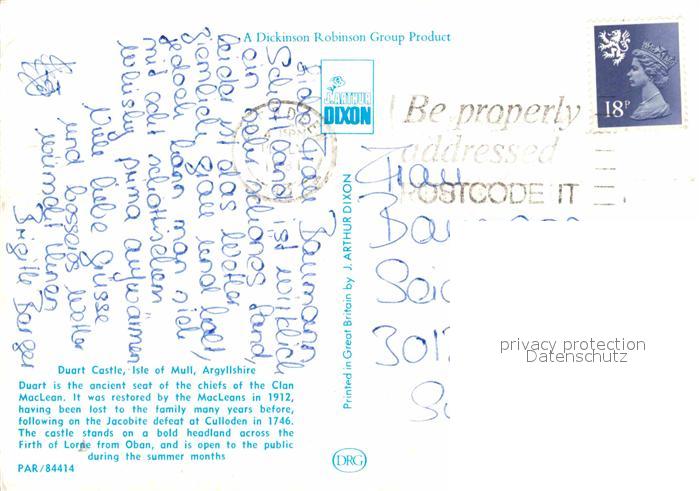 A Dickinson Robinson Group Product
Liebe Frau Baumann,
Schottland ist wirklich
ein sehr schönes Land,
leider ist das Wetter
ziemlich grau und kalt,
jedoch kann man sich
mit echt schottischem
Whisky prima aufwärmen
Viele liebe Grüsse
und besseres Wetter
wünscht Ihnen
Brigitte
J. ARTHUR
DIXON
Printed in Great Britain by J. ARTHUR DIXON
Be properly
addressed
POSTCODE IT
18P
Frau
Ba
301
privacy protection
Datenschutz
Duart Castle, Isle of Mull, Argyllshire
Duart is the ancient seat of the chiefs of the Clan
MacLean. It was restored by the MacLeans in 1912,
having been lost to the family many years before,
following on the Jacobite defeat at Culloden in 1746.
The castle stands on a bold headland across the
Firth of Lorne from Oban, and is open to the public
during the summer months
PAR/84414
DRG